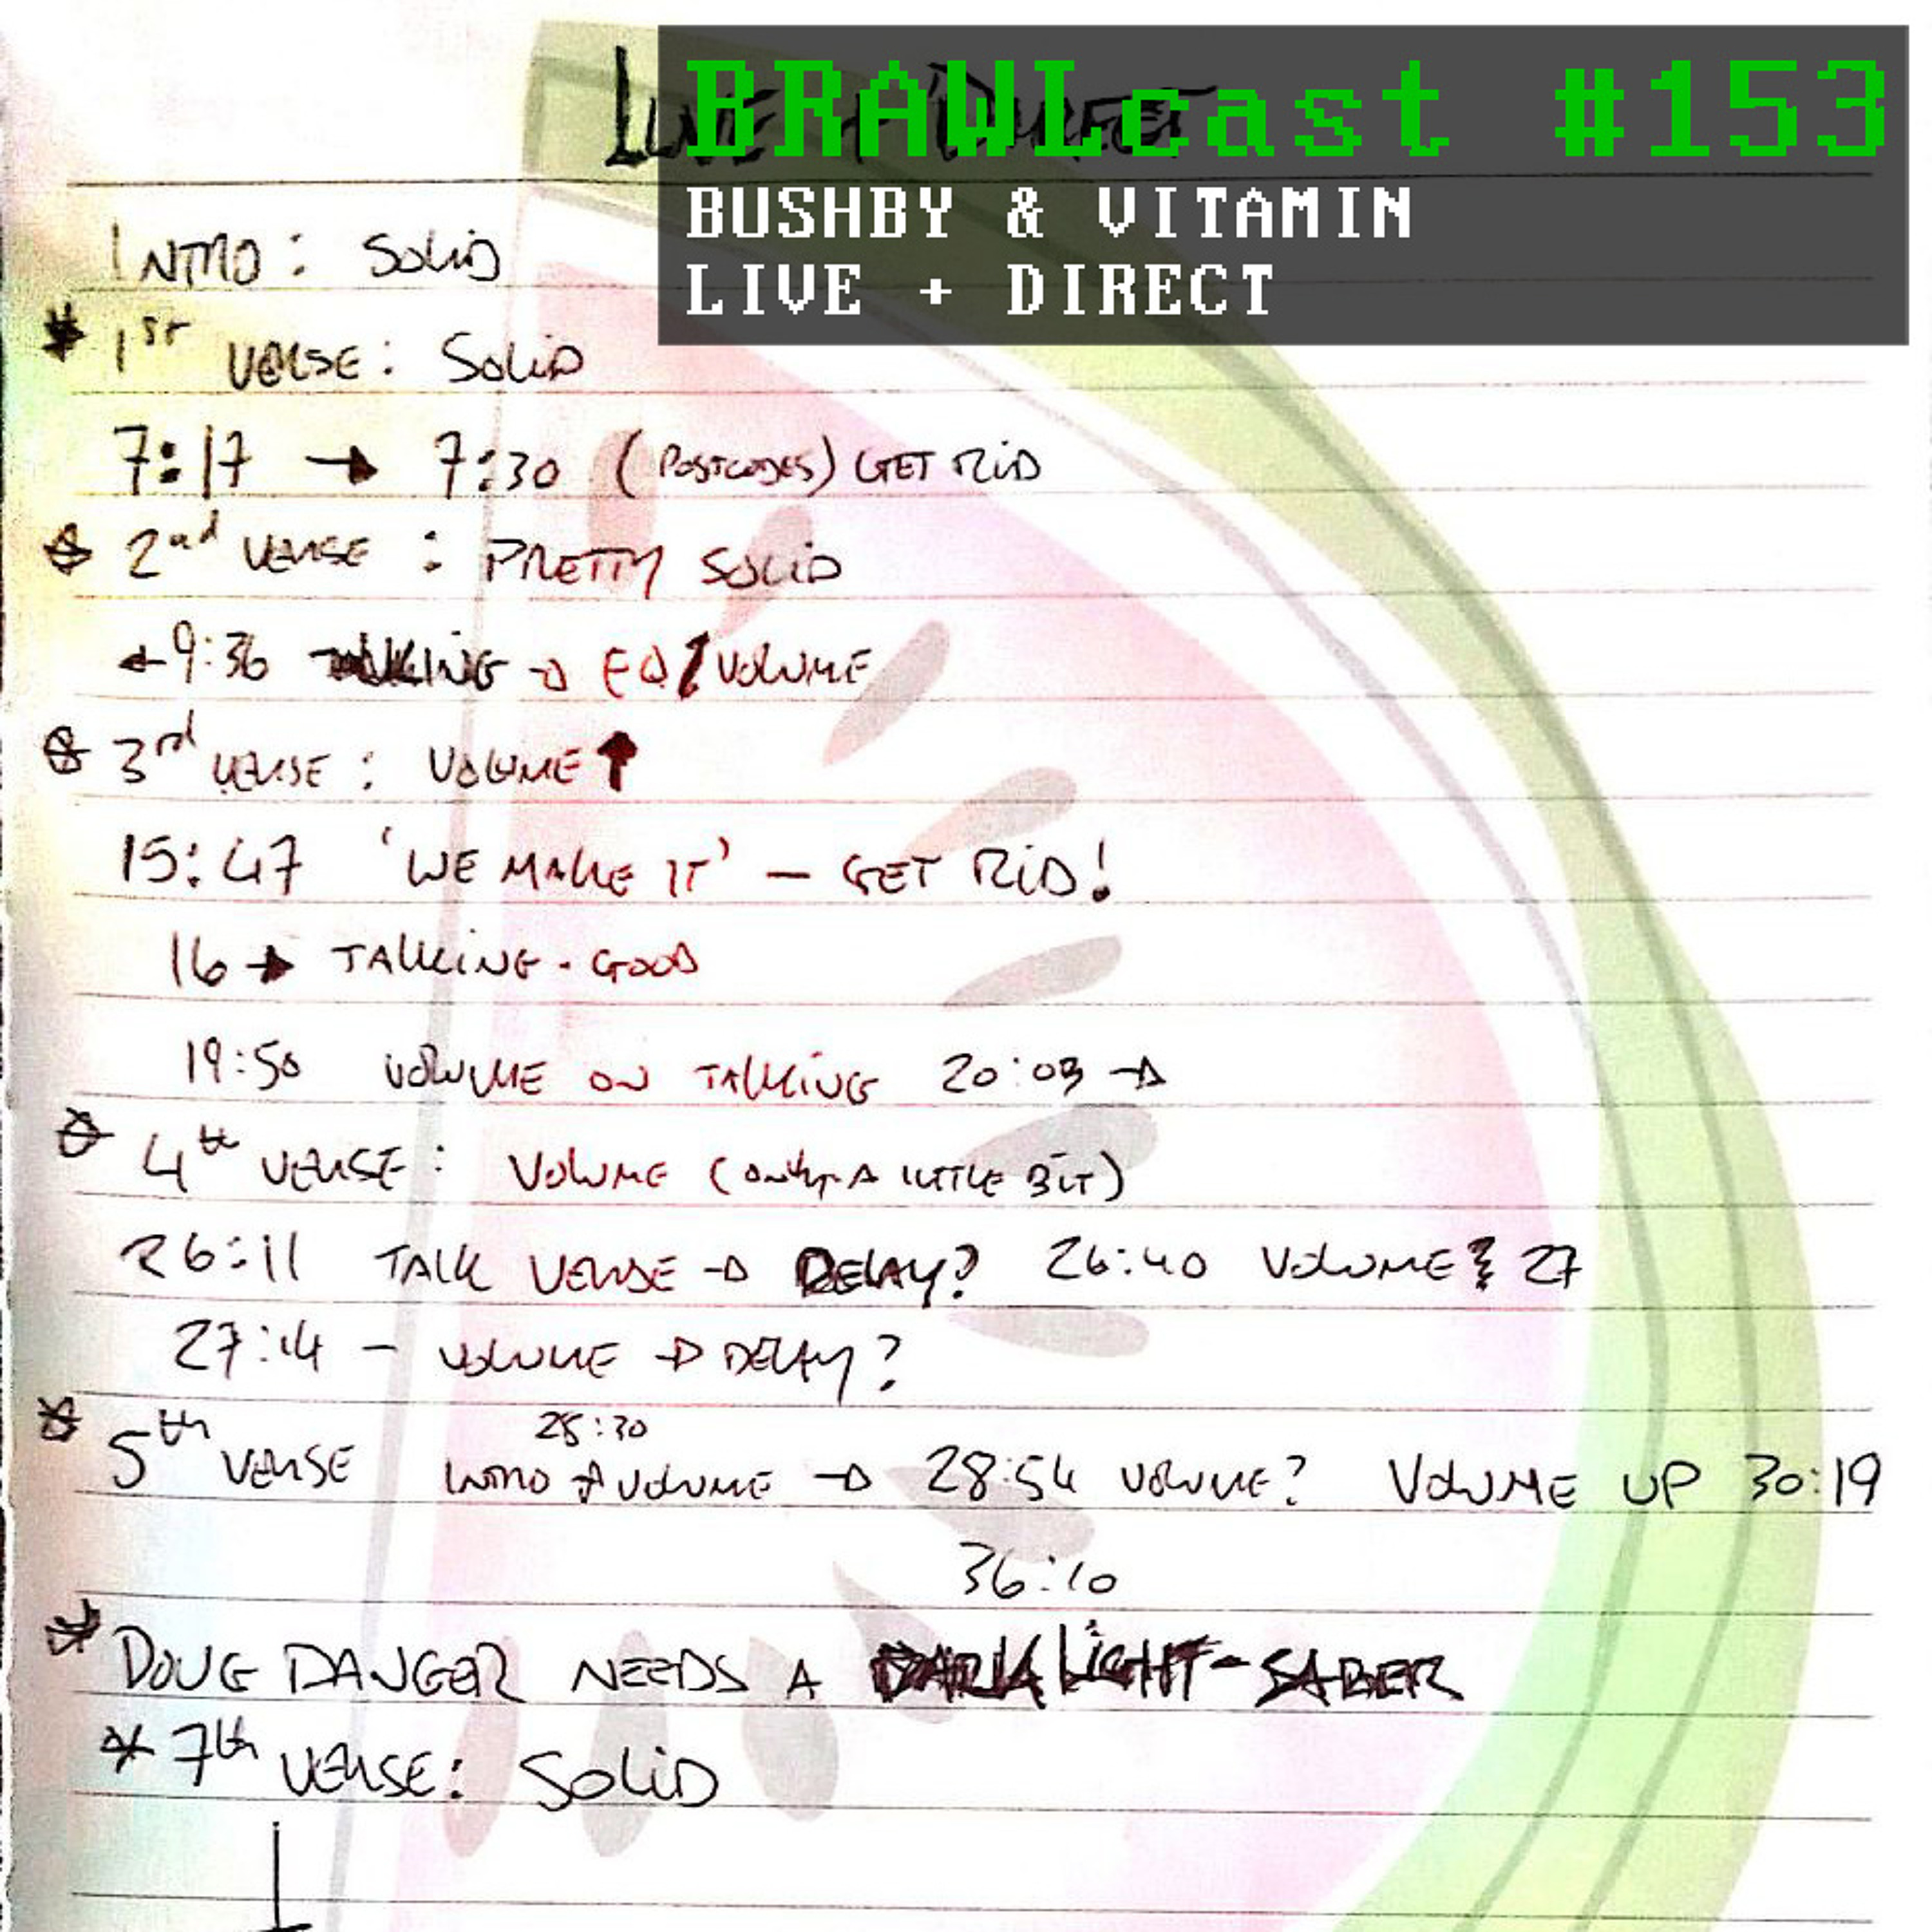 LIVE + DIRECT
BRAWLcast #153
BUSHBY & VITAMIN
LIVE + DIRECT
INTRO: SOLID
* 1st VERSE: SOLID
7:17 → 7:30 (POSTCODES) GET RID
* 2nd VERSE: PRETTY SOLID
←9:36 TALKING → EQ/VOLUME
* 3rd VERSE: VOLUME ↑
15:47 'WE MAKE IT' - GET RID!
16 → TALKING - GOOD
19:50 VOLUME ON TALKING 20:03 →
* 4th VERSE: VOLUME (ONLY A LITTLE BIT)
26:11 TALK VERSE → DELAY? 26:40 VOLUME & 27
27:14 - VOLUME → DELAY?
28:30
* 5th VERSE INTRO → VOLUME → 28:54 VOLUME? VOLUME UP 30:19
36:10
* DOUG DANGER NEEDS A LIGHT-SABER
* 7th VERSE: SOLID